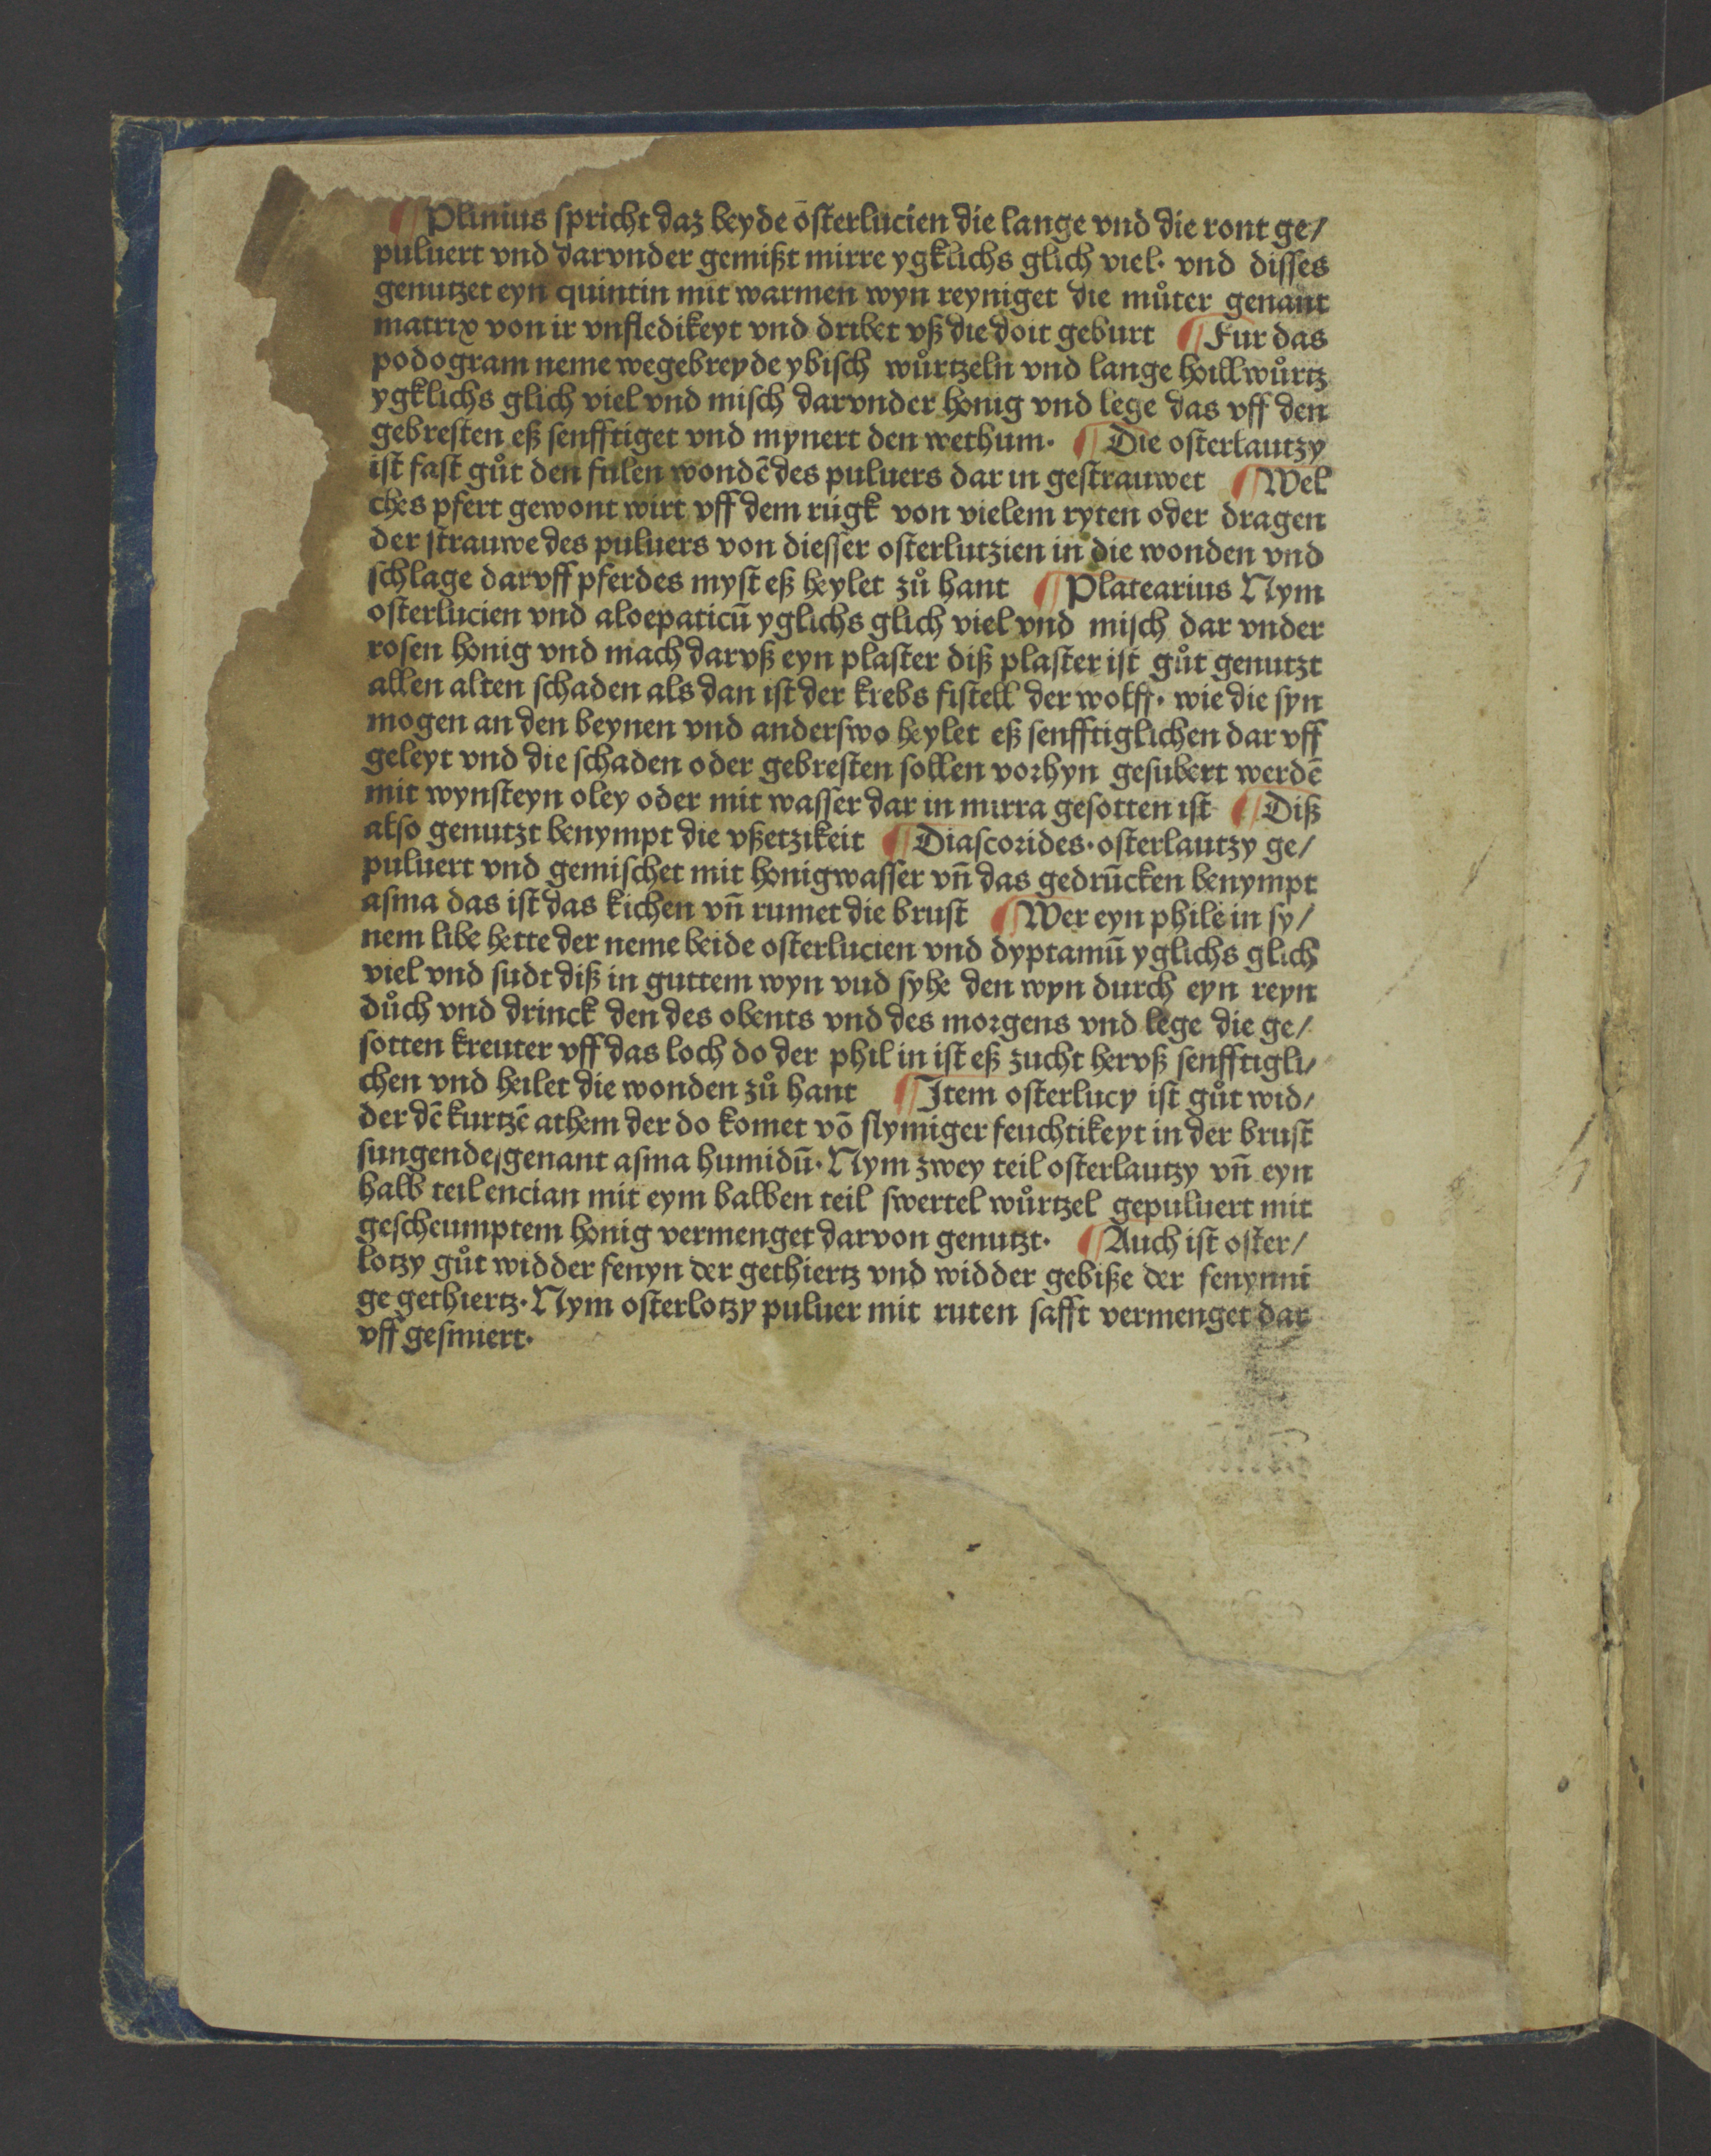 ¶ Plinius spricht daz beyde osterlucien die lange vnd die ront ge/
puluert vnd darvnder gemißt mirre ygklichs glich viel· vnd disses
genutzet eyn quintin mit warmen wyn reyniget die můter genant
matrix von ir vnfledikeyt vnd dribet vß die doit geburt ¶ Fur das
podogram neme wegebreyde ybisch wůrtzeln vnd lange hollwůrtz
ygklichs glich viel vnd misch darvnder honig vnd lege das vff den
gebresten eß senfftiget vnd mynert den wethum· ¶ Die osterlautzy
ist fast gůt den fulen wondē des puluers dar in gestrauwet ¶ Wel
ches pfert gewont wirt vff dem rúgk von vielem ryten oder dragen
der strauwe des puluers von diesser osterlutzien in die wonden vnd
schlage darvff pferdes myst eß heylet zů hant ¶ Platearius Nym
osterlucien vnd aloepaticū yglichs glich viel vnd misch dar vnder
rosen honig vnd mach darvß eyn plaster diß plaster ist gůt genutzt
allen alten schaden als dan ist der krebs fistell der wolff· wie die syn
mogen an den beynen vnd anderswo heylet eß senfftiglichen dar vff
geleyt vnd die schaden oder gebresten sollen vorhyn gesubert werdē
mit wynsteyn oley oder mit wasser dar in mirra gesotten ist ¶ Diß
also genutzt benympt die vßetzikeit ¶ Diascorides· osterlautzy ge/
puluert vnd gemischet mit honigwasser vn̄ das gedrūcken benympt
asma das ist das kichen vn̄ rumet die brust ¶ Wer eyn phile in sy/
nem libe hette der neme beide osterlucien vnd dyptamū yglichs glich
viel vnd sudt diß in guttem wyn vud syhe den wyn durch eyn reyn
důch vnd drinck den des obents vnd des morgens vnd lege die ge/
sotten kreuter vff das loch do der phil in ist eß zucht hervß senfftigli/
chen vnd heilet die wonden zů hant ¶ Item osterlucy ist gůt wid/
der dē kurtzē athem der do komet vō slymiger feuchtikeyt in der brust
sungende/genant asma humidū· Nym zwey teil osterlautzy vn̄ eyn
halb teil encian mit eym balben teil swertel wůrtzel gepuluert mit
gescheumptem honig vermenget darvon genutzt· ¶ Auch ist oster/
lotzy gůt widder fenyn der gethiertz vnd widder gebiße der fenynni
ge gethiertz· Nym osterlotzy puluer mit ruten safft vermenget dar
vff gesmiert·